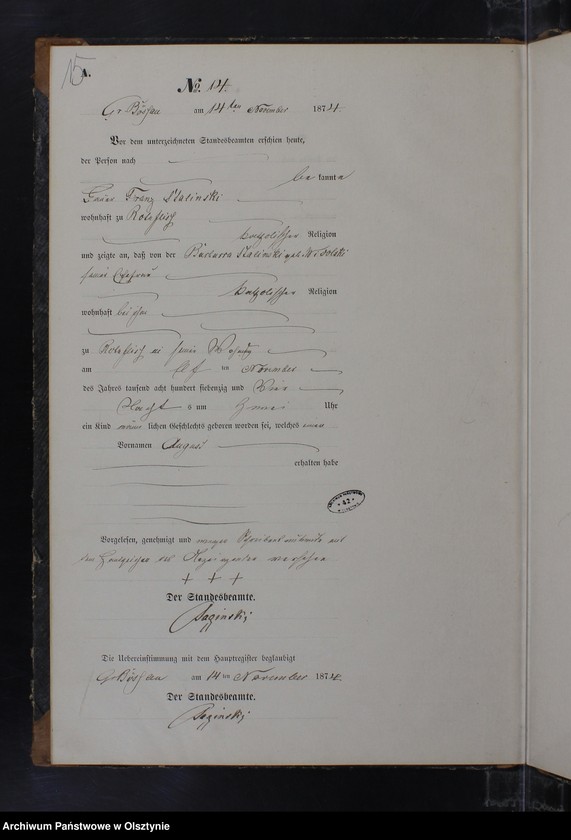 15
A.
No. 14.
Gr Bößau am 14ten November 1874.
Vor dem unterzeichneten Standesbeamten erschien heute,
der Person nach
be kannt
Franz Stalinski
wohnhaft zu Rothfließ
katholischer Religion
und zeigte an, daß von der Barbara Stalinski geb.
seiner Ehefrau
katholischer Religion
wohnhaft bei ihm
zu Rothfließ in seiner Wohnung
am ten November
des Jahres tausend acht hundert siebenzig und Vier
Nacht s um Uhr
ein Kind männ lichen Geschlechts geboren worden sei, welches
Vornamen August
erhalten habe
Vorgelesen, genehmigt und wegen
dem Handzeichen des versehen
+ + +
Der Standesbeamte.
Die Uebereinstimmung mit dem Hauptregister beglaubigt
Gr Bößau am 14 ten November 1874
Der Standesbeamte.
Archiwum Państwowe w Olsztynie